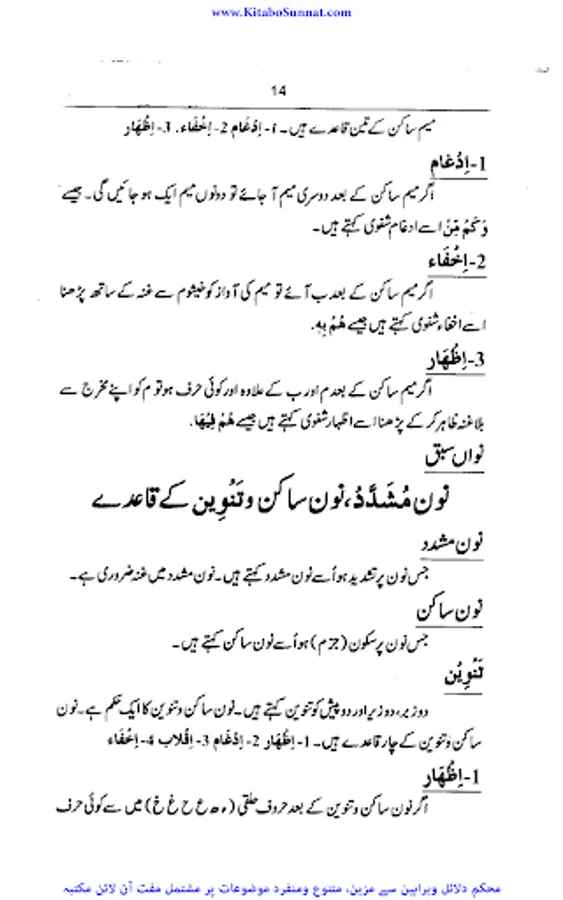 www.KitaboSunnat.com
14
میم ساکن کے تین قاعدے ہیں۔ 1-اِدْغَام 2-اِخْفَاء۔ 3-اِظْهَار
1-اِدْغَام
اگر میم ساکن کے بعد دوسری میم آ جائے تو دونوں میم ایک ہو جائیں گی۔ جیسے
وَكُمْ مِّنْ اسے ادغام شفوی کہتے ہیں۔
2-اِخْفَاء
اگر میم ساکن کے بعد ب آئے تو میم کی آواز کو خیشوم سے غنہ کے ساتھ پڑھنا
اسے اخفاء شفوی کہتے ہیں جیسے هُمْ بِهِ.
3-اِظْهَار
اگر میم ساکن کے بعد م اور ب کے علاوہ اور کوئی حرف ہو تو م کو اپنے مخرج سے
بلا غنہ ظاہر کر کے پڑھنا اسے اظہار شفوی کہتے ہیں جیسے هُمْ فِيْهَا.
نواں سبق
نون مُشَدَّدْ، نون ساکن و تَنْوِین کے قاعدے
نون مشدد
جس نون پر تشدید ہو اُسے نون مشدد کہتے ہیں۔ نون مشدد میں غنہ ضروری ہے۔
نون ساکن
جس نون پر سکون (جزم) ہو اُسے نون ساکن کہتے ہیں۔
تَنْوِيْن
دو زبر، دو زیر اور دو پیش کو تنوین کہتے ہیں۔ نون ساکن و تنوین کا ایک حکم ہے۔ نون
ساکن و تنوین کے چار قاعدے ہیں۔ 1-اِظْهَار 2-اِدْغَام 3-اِقْلَاب 4-اِخْفَاء
1-اِظْهَار
اگر نون ساکن و تنوین کے بعد حروف حلقی (ء ھ ع ح غ خ) میں سے کوئی حرف
محکم دلائل وبراہین سے مزین، متنوع ومنفرد موضوعات پر مشتمل مفت آن لائن مکتبہ